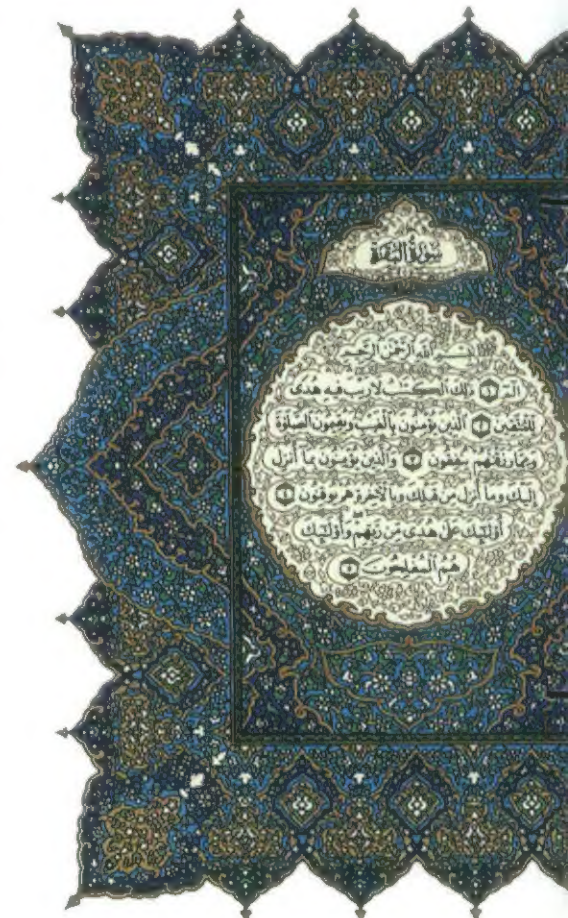 سُورَةُ الْبَقَرَةِ
بِسْمِ اللَّهِ الرَّحْمَٰنِ الرَّحِيمِ
الٓمٓ ۝١ ذَٰلِكَ الْكِتَٰبُ لَا رَيْبَ فِيهِ هُدًى
لِّلْمُتَّقِينَ ۝٢ الَّذِينَ يُؤْمِنُونَ بِالْغَيْبِ وَيُقِيمُونَ الصَّلَوٰةَ
وَمِمَّا رَزَقْنَٰهُمْ يُنفِقُونَ ۝٣ وَالَّذِينَ يُؤْمِنُونَ بِمَا أُنزِلَ
إِلَيْكَ وَمَا أُنزِلَ مِن قَبْلِكَ وَبِالْآخِرَةِ هُمْ يُوقِنُونَ ۝٤
أُولَٰئِكَ عَلَىٰ هُدًى مِّن رَّبِّهِمْ وَأُولَٰئِكَ
هُمُ الْمُفْلِحُونَ ۝٥